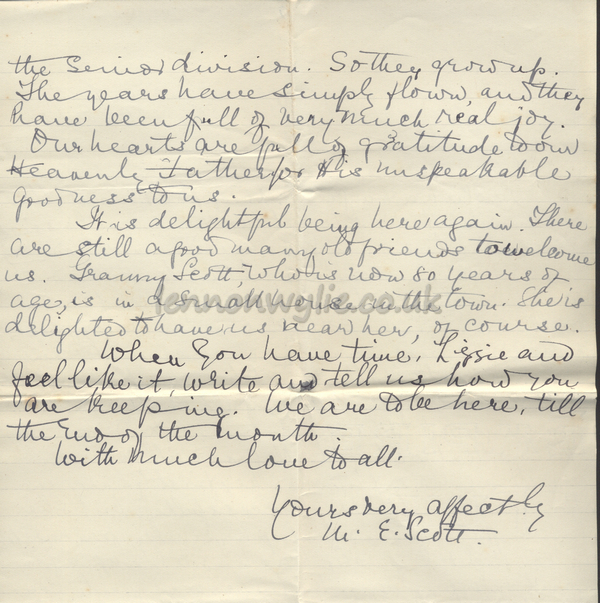 the Senior division. So they grow up.
The years have simply flown, and they
have been full of very much real joy.
Our hearts are full of gratitude to our
Heavenly Father for His unspeakable
goodness to us.
It is delightful being here again. There
are still a good many old friends to welcome
us. Granny Scott, who is now 80 years of
age, is in a small house in the town. She is
lennonwylie.co.uk
delighted to have us near her, of course.
When you have time, Lizzie and
feel like it, write and tell us how you
are keeping. We are to be here, till
the end of the month.
With much love to all.
Yours very affectly
M. E. Scott.